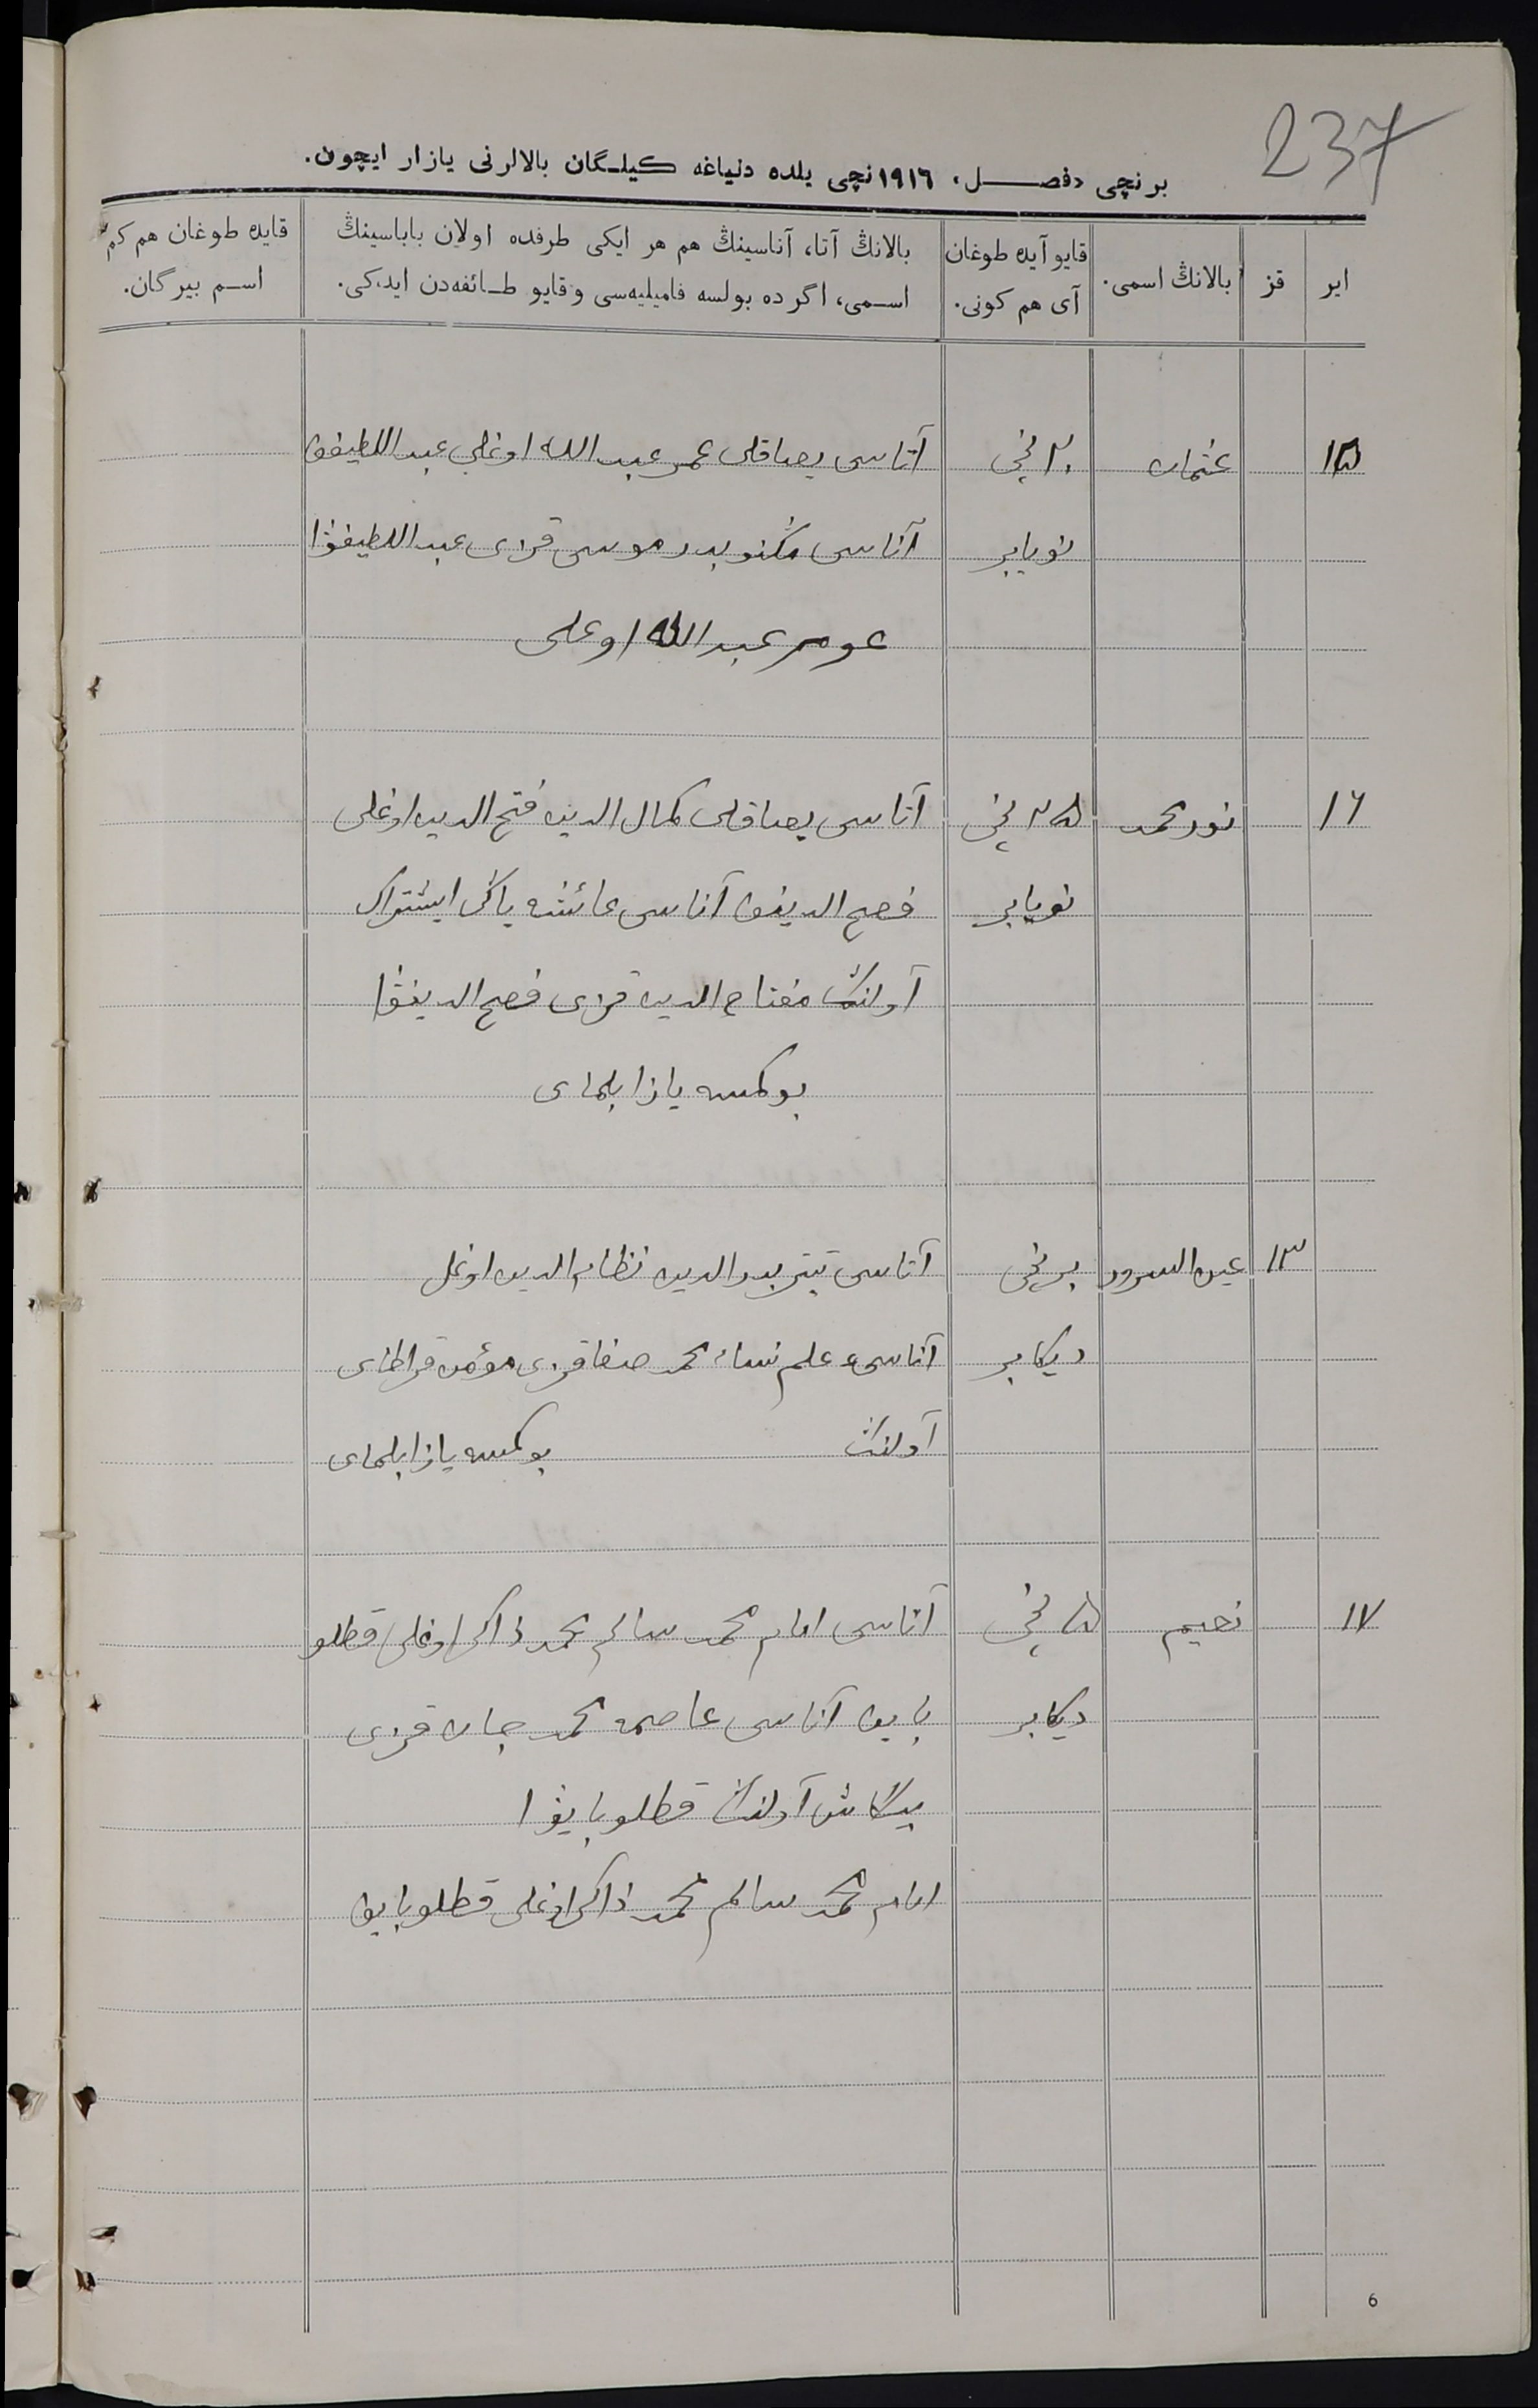 237
برنچی «فصل» ١٩١٦نچی یلده دنیاغه کیلـگان بالالرنی یازار ایچون.
ایر
قز
بالانڭ اسمی.
قایو آیده طوغان
آی هم کونی.
بالانڭ آتا، آناسینڭ هم هر ایکی طرفده اولان باباسینڭ
اسـمی، اگر ده بولسه فامیلیه‌سی و قایو طـائفه‌دن ایدکی.
قایده طوغان هم کم
اسـم بیرگان.
١٥ عثمان ٢٠ نچی آتاسی یصاقلی عمر عبد الله اوغلی عبد اللطیفف
نویابر آناسی بدر موسی قزی عبد اللطیفوا
عومر عبد الله اوعلی
١٦ نورمحمد ٢٥ نچی آتاسی یصاقلی کمال الدین فتح الدین اوغلی
نویابر فصح الدینف آناسی عائشه یاڭی ایشتراک
آولنڭ مفتاح الدین قزی فصح الدینوا
بوکسه یازا بلمای
١٣ عین السرور برنچی آتاسی تبتر بدر الدین نظام الدین اوغلی
دیکابر آناسی علم نساء محمد صفا قزی مؤمن قراطای
آولنڭ بوکسه یازا بلمای
١٧ نعیم ٥ نچی آتاسی امام محمد سالم محمد ذاکر اوغلی قطلو
دیکابر بایف آناسی عاصمه محمد جان قزی
آولنڭ قطلوبایوا
امام محمد سالم محمد ذاکر اوغلی قطلوبایف
6